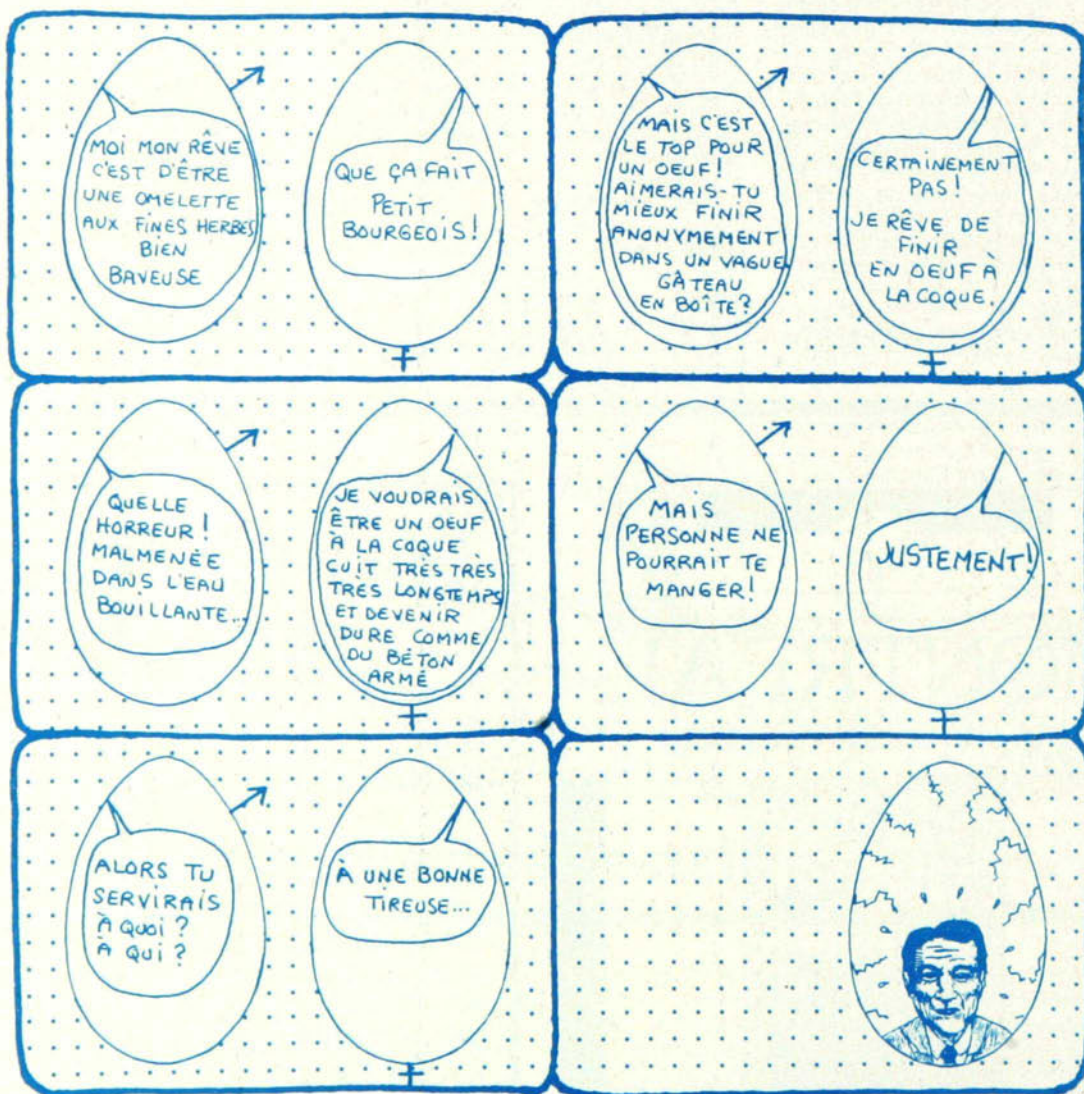 MOI MON RÊVE
C'EST D'ÊTRE
UNE OMELETTE
AUX FINES HERBES
BIEN
BAVEUSE
QUE ÇA FAIT
PETIT
BOURGEOIS!
MAIS C'EST
LE TOP POUR
UN OEUF!
AIMERAIS-TU
MIEUX FINIR
ANONYMEMENT
DANS UN VAGUE
GÂTEAU
EN BOÎTE?
CERTAINEMENT
PAS!
JE RÊVE DE
FINIR
EN OEUF À
LA COQUE.
QUELLE
HORREUR!
MALMENÉE
DANS L'EAU
BOUILLANTE...
JE VOUDRAIS
ÊTRE UN OEUF
À LA COQUE
CUIT TRÈS TRÈS
TRÈS LONGTEMPS
ET DEVENIR
DURE COMME
DU BÉTON
ARMÉ
MAIS
PERSONNE NE
POURRAIT TE
MANGER!
JUSTEMENT!
ALORS TU
SERVIRAIS
À QUOI?
À QUI?
À UNE BONNE
TIREUSE...